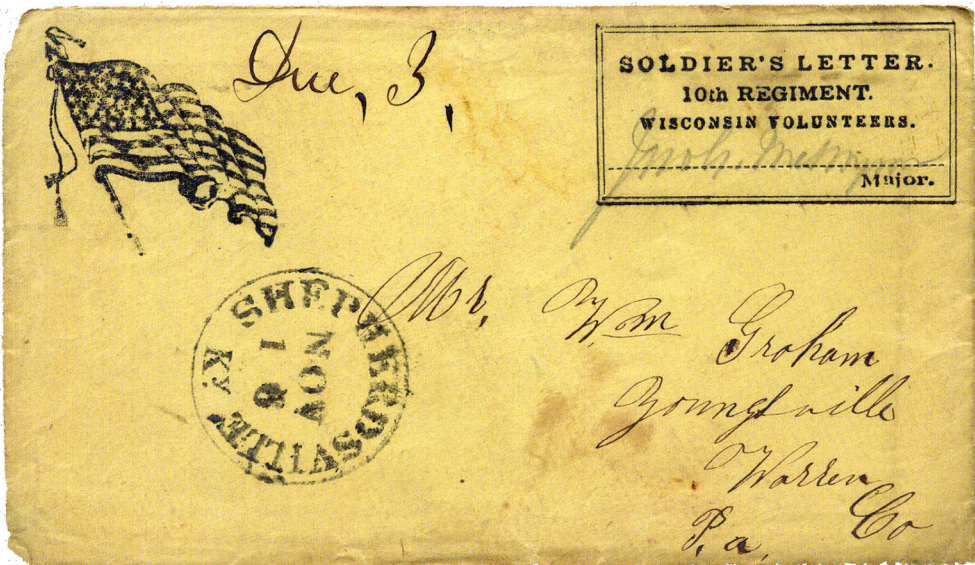 Due, 3,
SOLDIER'S LETTER.
10th REGIMENT.
WISCONSIN VOLUNTEERS.
Major.
SHEPHERDSVILLE KY
NOV
Mr. Wm Graham
Youngsville
Warren Co
P.a.